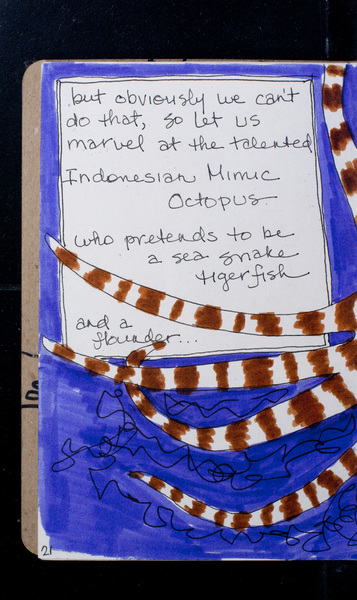 but obviously we can't
do that, so let us
marvel at the talented
Indonesian Mimic
Octopus
who pretends to be
a sea snake
tigerfish
and a
flounder...
21